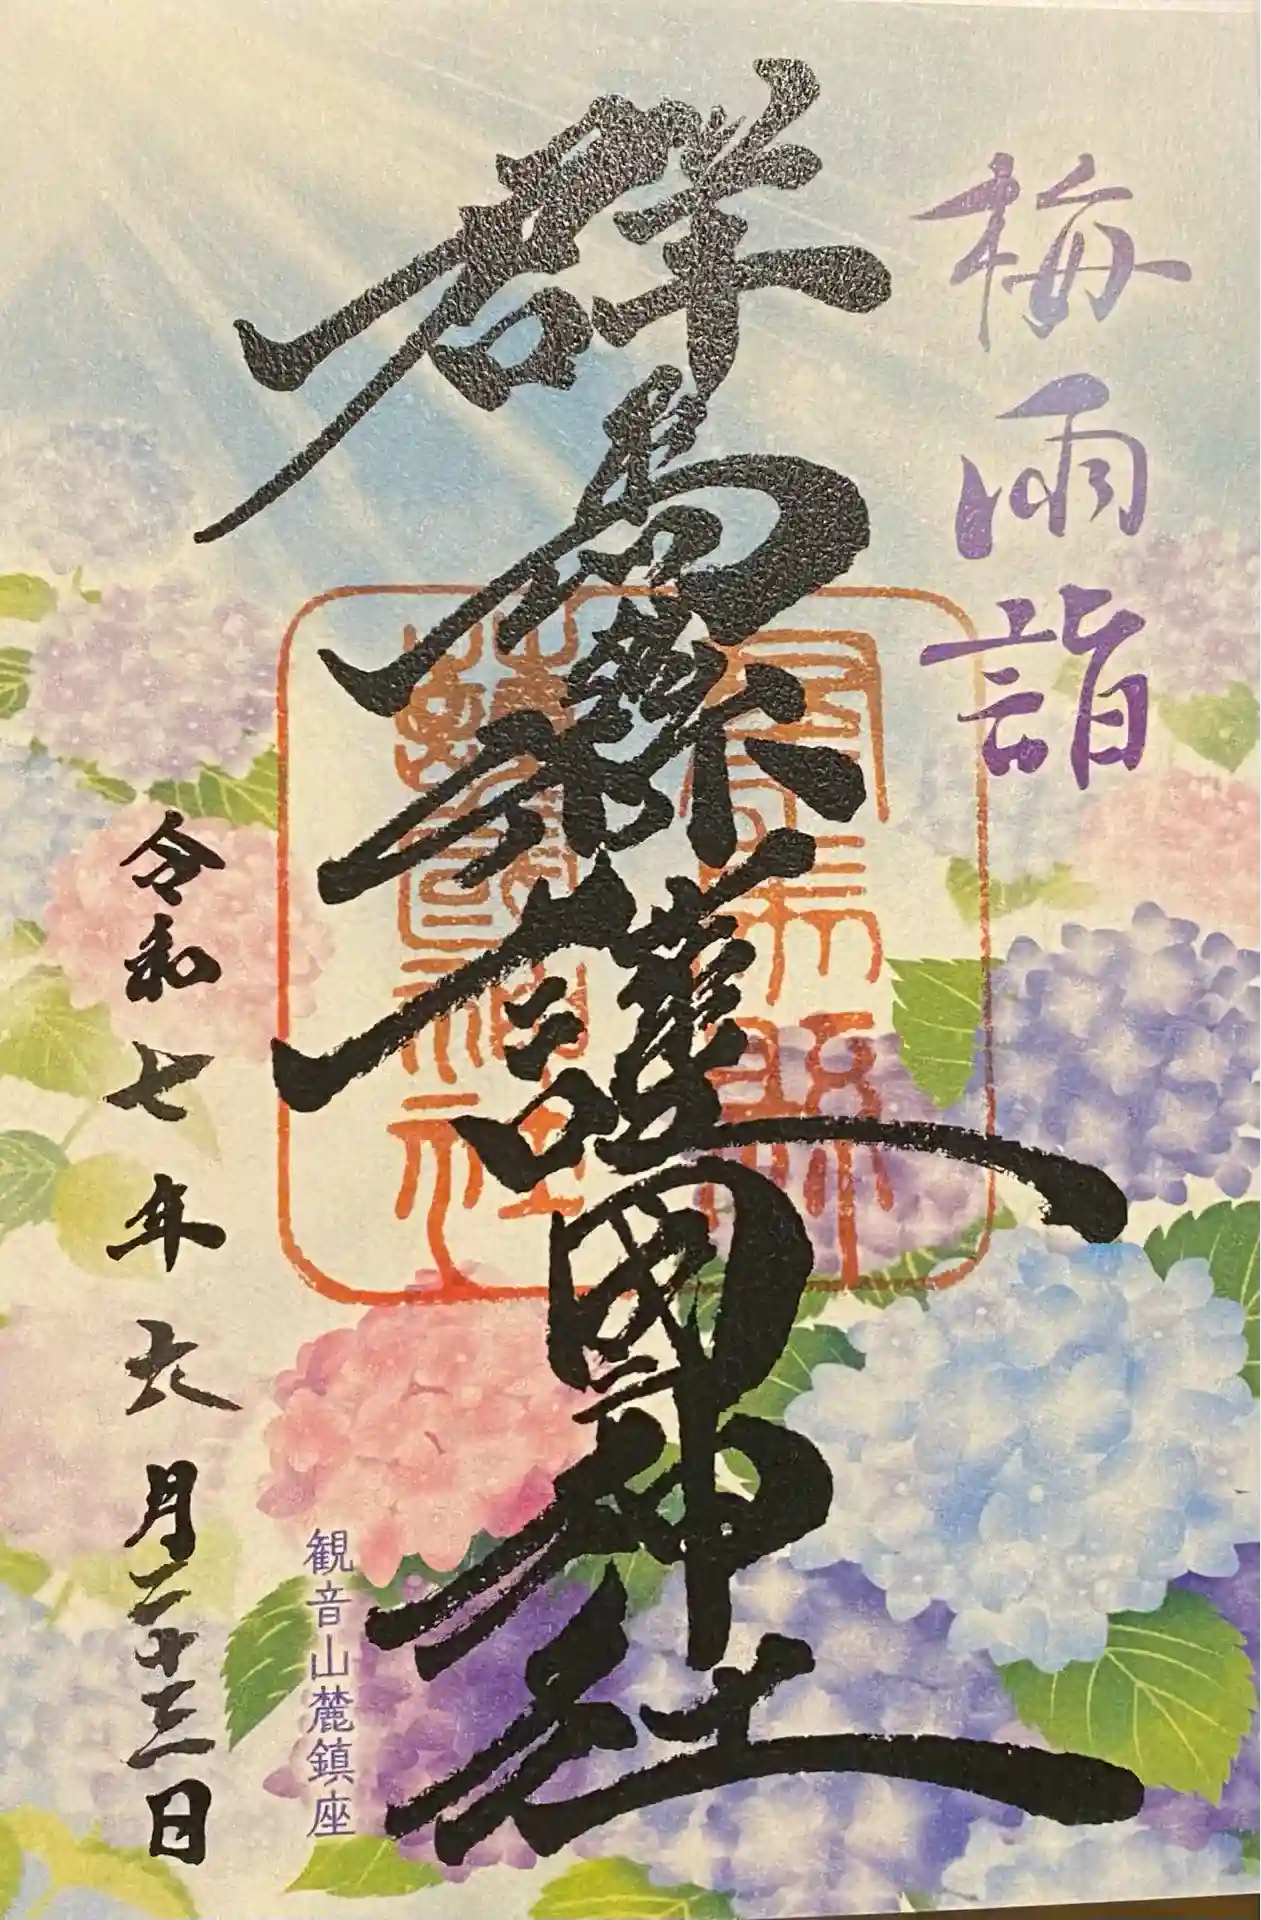 梅雨詣
群馬縣護國神社
群馬縣
護國神社
観音山麓鎮座
令和七年六月二十三日